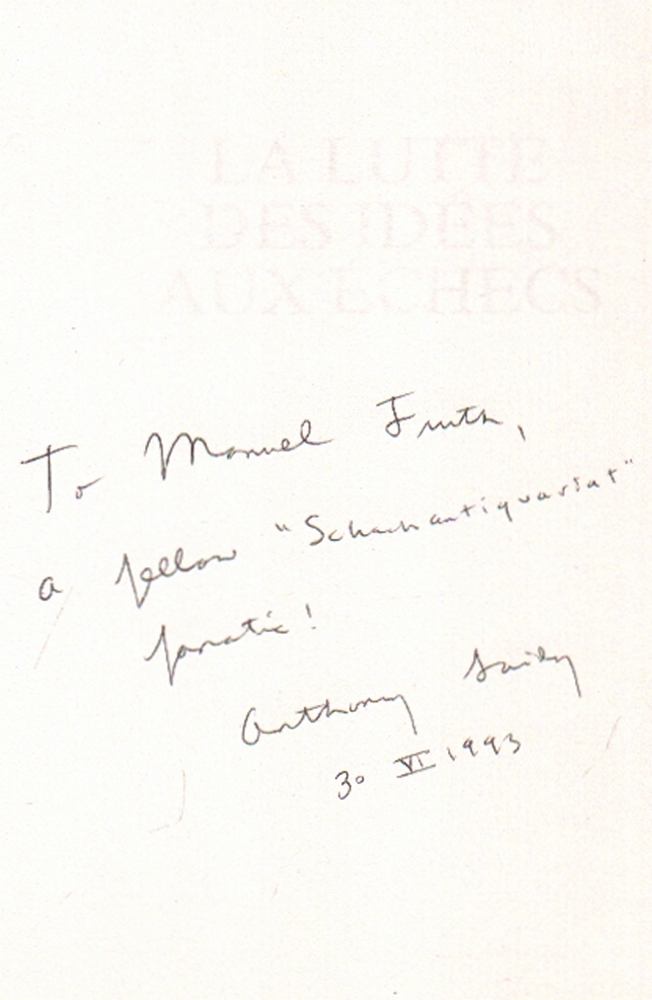 LA LUTTE
DES IDÉES
AUX ÉCHECS
To Manuel Fruth,
a fellow "Schachantiquariat"
fanatic!
Anthony Saidy
30 VI 1993